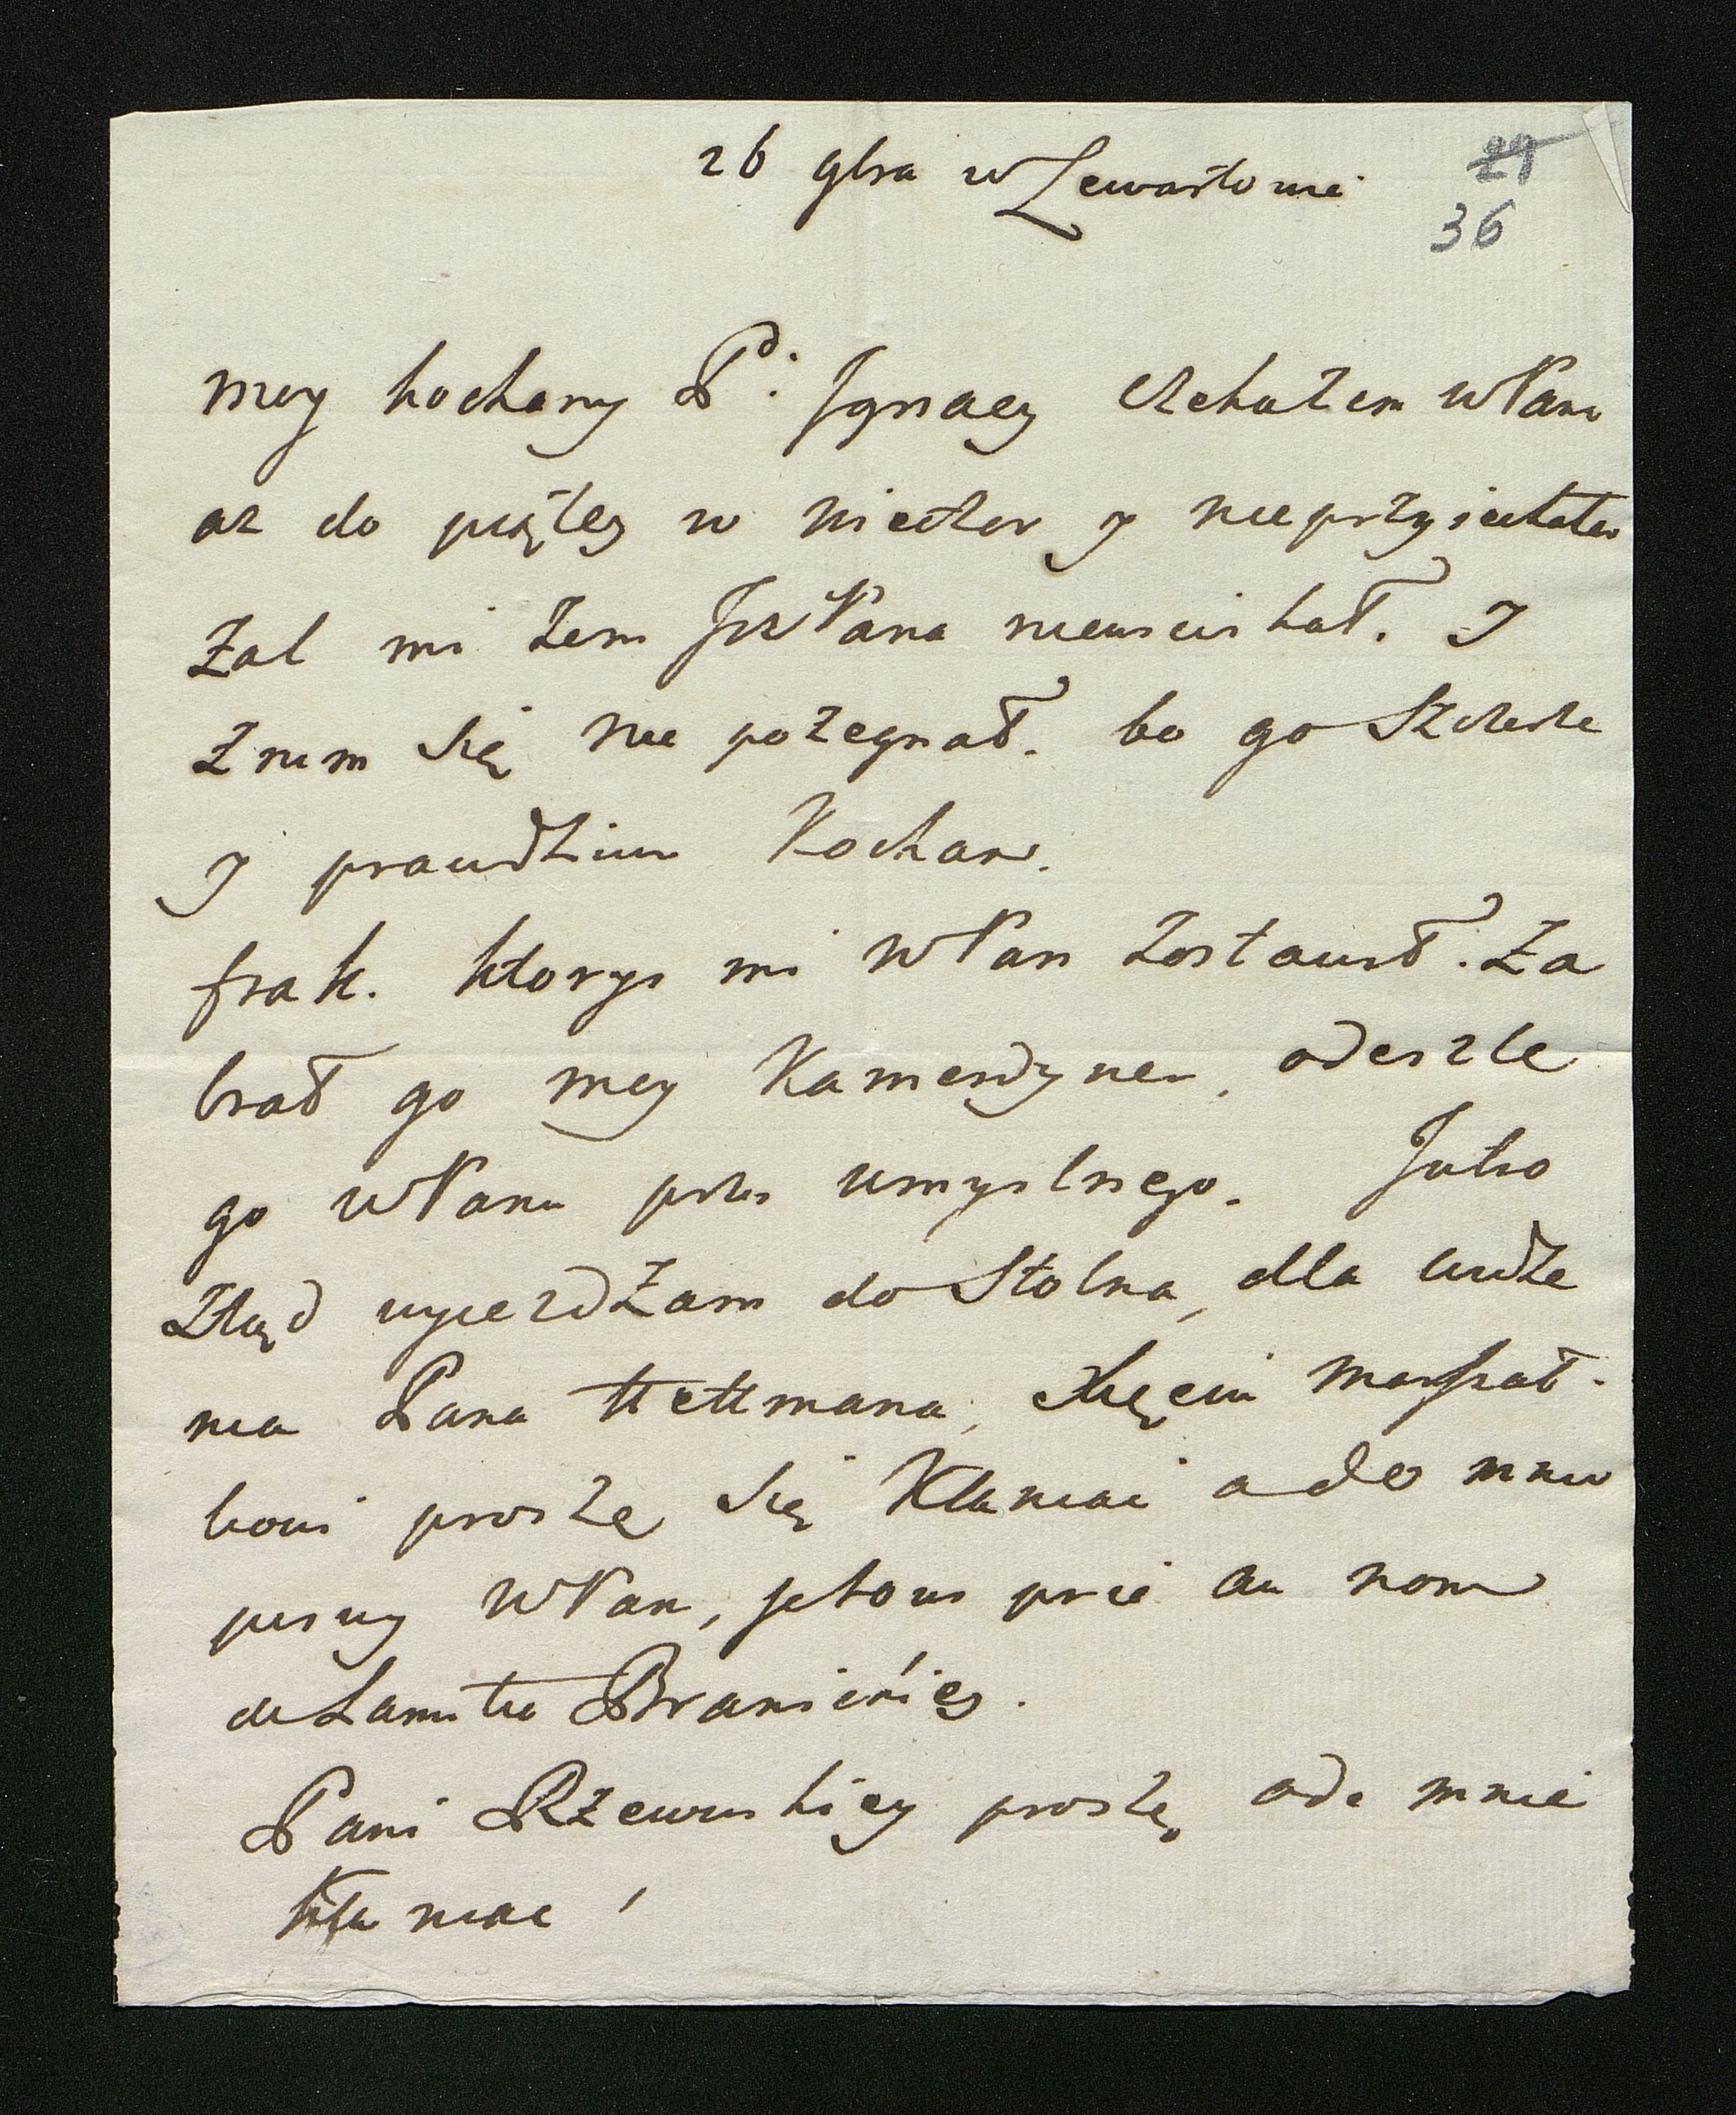 26 9bra w Lewartowie
29
36
moy kochany Pe. Jgnacy Czekałem WPana
az do piątey w wieczor y nieprzyiechałes
Żal mi żem JeWPana nieusciskał. J
Z nim się nie pożegnał. bo go Szczerze
y prawdziwie Kocham.
frak. ktorys mi WPan Zostawił. Za
brał go moy Kamerdyner, odeszle
go WPanu przez umyslnego. Jutro
Ztąd wyiezdżam do Stolna, dla widze
nia Pana Hettmana, Xięciu Marszał-
kowi proszę się Kłaniać a do mnie
pisuy WPan, je vous prie au nom
de Lamitie Branickiey.
Pani Rzewuskiey proszę ode mnie
Kłaniac!